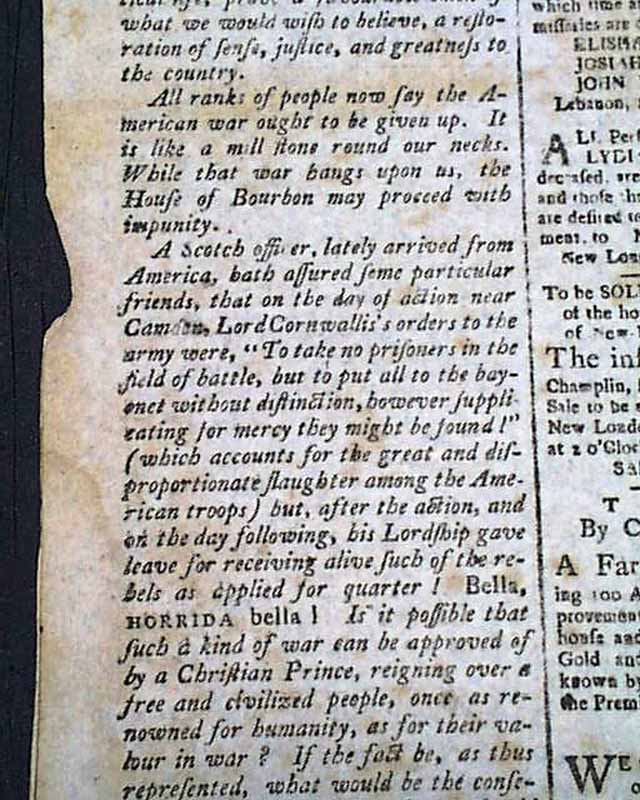 what we would wiſh to believe, a reſto-
ration of ſenſe, juſtice, and greatneſs to
the country.
All ranks of people now ſay the A-
merican war ought to be given up. It
is like a mill ſtone round our necks.
While that war hangs upon us, the
Houſe of Bourbon may proceed with
impunity.
A Scotch officer, lately arrived from
America, hath aſſured ſome particular
friends, that on the day of action near
Camden, Lord Cornwallis's orders to the
army were, "To take no priſoners in the
field of battle, but to put all to the bay-
onet without diſtinction, however ſuppli-
cating for mercy they might be found!"
(which accounts for the great and diſ-
proportionate ſlaughter among the Ame-
rican troops) but, after the action, and
on the day following, his Lordſhip gave
leave for receiving alive ſuch of the re-
bels as applied for quarter! Bella,
HORRIDA bella! Is it poſſible that
ſuch a kind of war can be approved of
by a Chriſtian Prince, reigning over a
free and civilized people, once as re-
nowned for humanity, as for their va-
lour in war? If the fact be, as thus
repreſented, what would be the conſe-
which time
miſſaries are
ELISHA
JOSIAH
JOHN
Lebanon,
ALL Per
LYDI
deceaſed, are
and thoſe
are deſired to
ment, to
New Lon
To be SOL
of the ho
of New
The in
Champlin,
Sale to be
New Lond
at 2 o'Cloc
T
By C
A Far
ing 100 A
provemen
houſe and
Gold and
known by
the Premi
WE